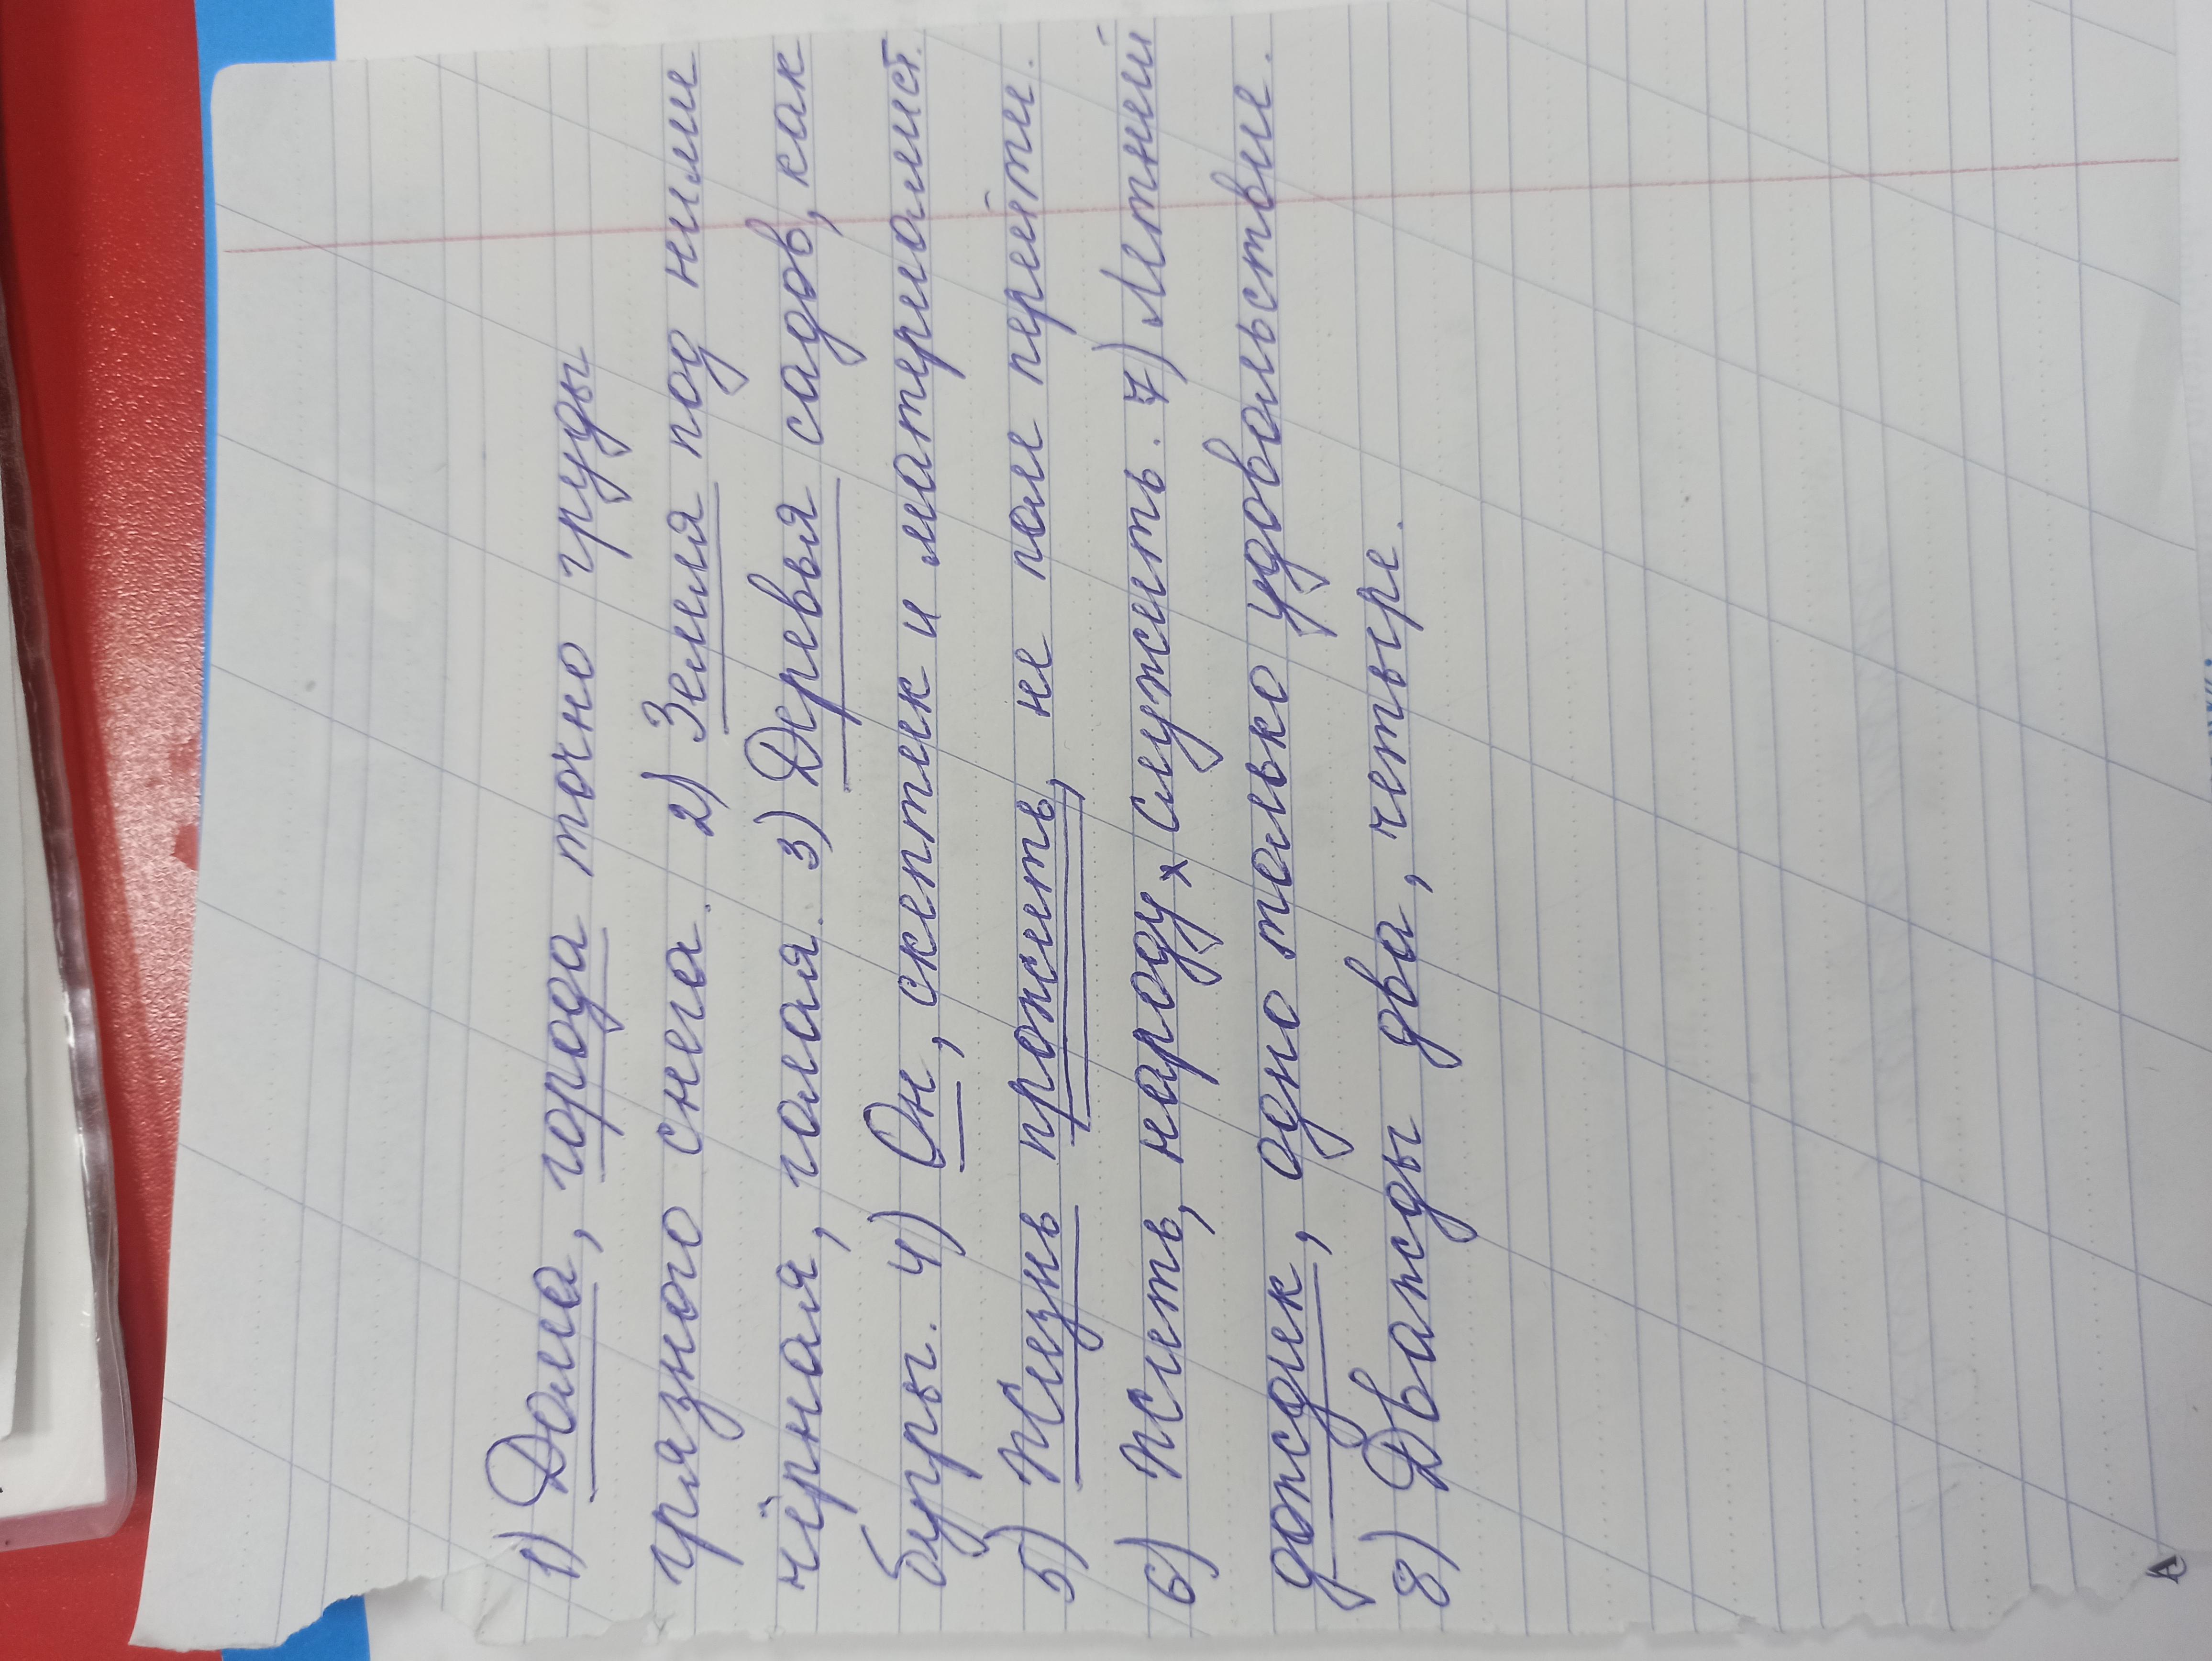 1) Дома, города точно груды
грязного снега. 2) Земля под ними
чёрная, голая. 3) Деревья садов, как
бугры. 4) Он, скептик и материалист.
5) Жизнь прожить, не поле перейти.
6) Жить, народу служить. 7) Летний
дождик, одно только удовольствие.
8) Дважды два, четыре.